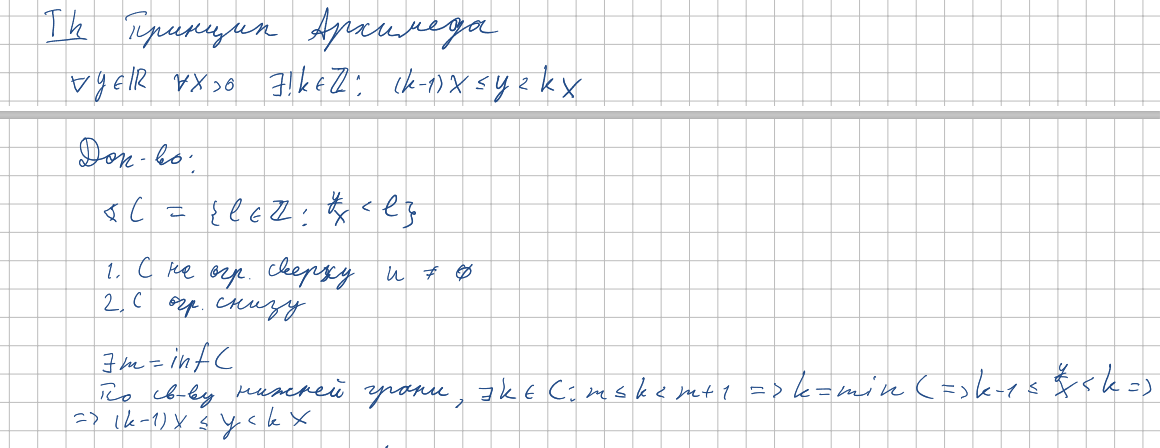 Th Принцип Архимеда
∀y∈ℝ ∀x>0 ∃!k∈ℤ: (k-1)x ≤ y < kx
Док-во:
∢ C = {l∈ℤ: y/x < l}
1. C не огр. сверху и ≠ ∅
2. C огр. снизу
∃m = inf C
По св-ву нижней грани, ∃k∈C: m ≤ k < m+1 => k = min C => k-1 ≤ y/x < k =>
=> (k-1)x ≤ y < kx